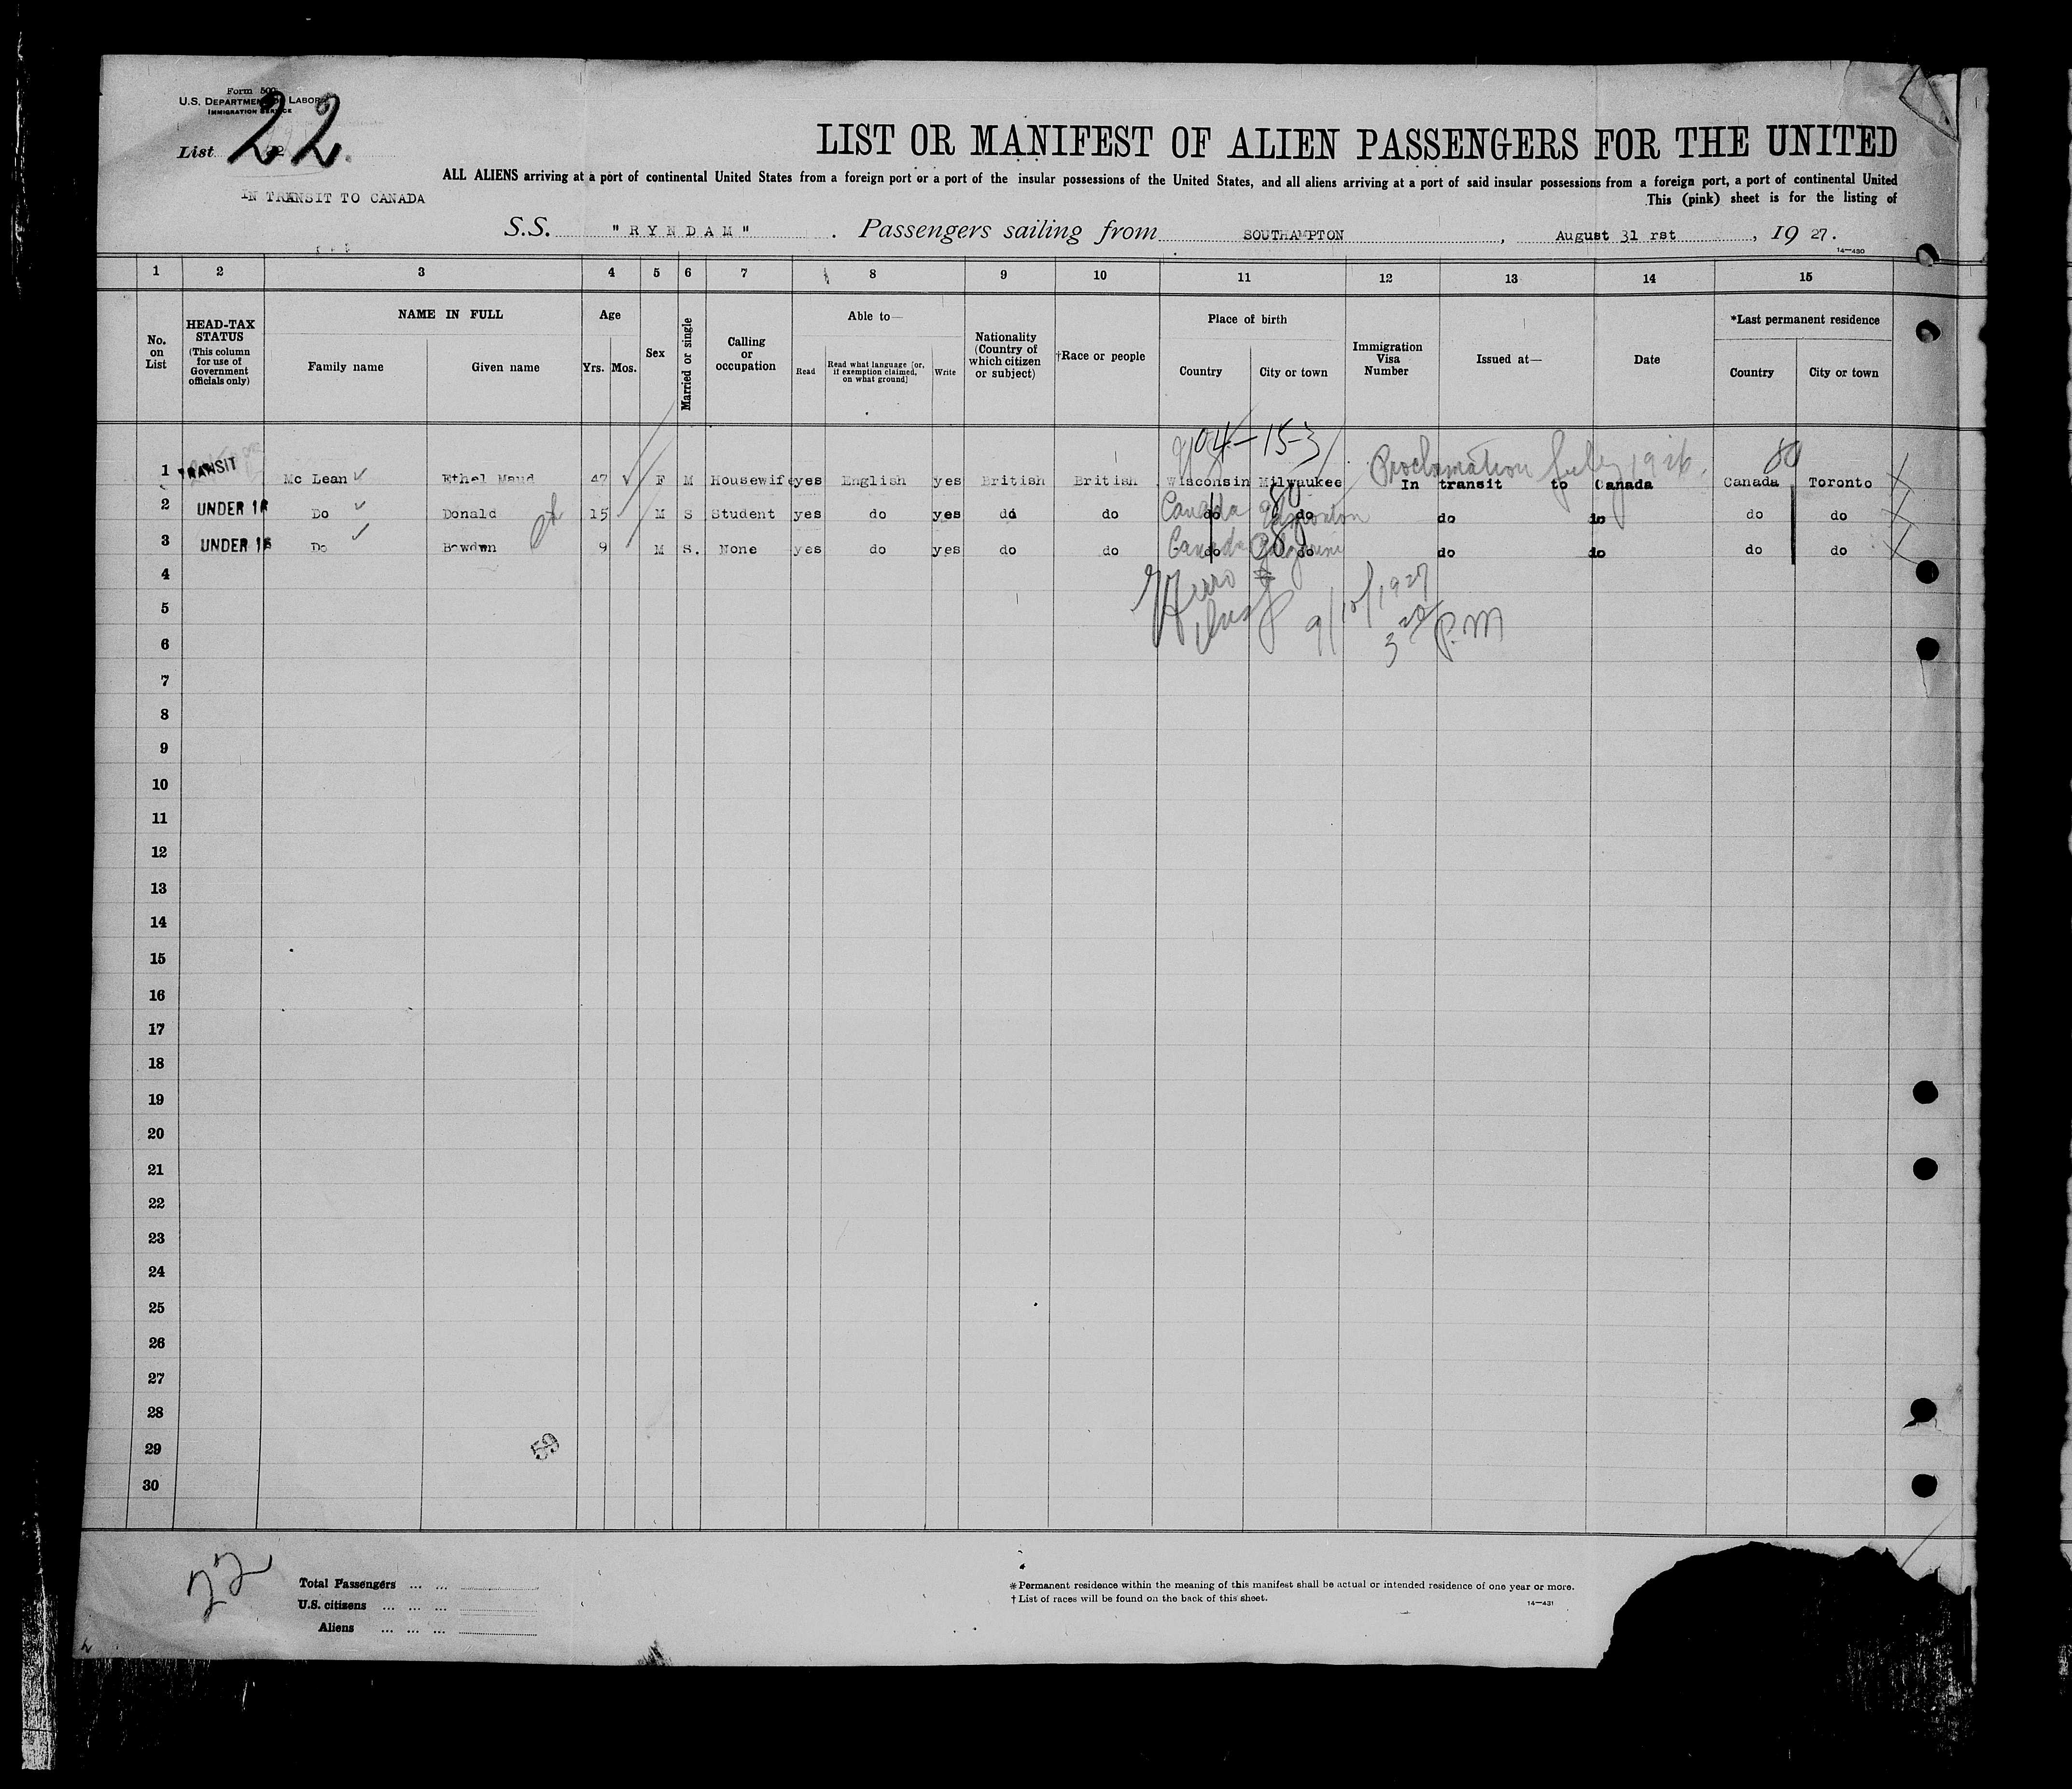 Form 500
U.S. DEPARTMENT OF LABOR
IMMIGRATION SERVICE
List 22
IN TRANSIT TO CANADA
LIST OR MANIFEST OF ALIEN PASSENGERS FOR THE UNITED
ALL ALIENS arriving at a port of continental United States from a foreign port or a port of the insular possessions of the United States, and all aliens arriving at a port of said insular possessions from a foreign port, a port of continental United
This (pink) sheet is for the listing of
S.S. "RYNDAM". Passengers sailing from SOUTHAMPTON, August 31 rst, 1927.
14—430
1 2 3 4 5 6 7 8 9 10 11 12 13 14 15
No. on List
HEAD-TAX STATUS (This column for use of Government officials only)
NAME IN FULL
Family name Given name
Age
Yrs. Mos.
Sex
Married or single
Calling or occupation
Able to—
Read Read what language [or, if exemption claimed, on what ground] Write
Nationality (Country of which citizen or subject)
†Race or people
Place of birth
Country City or town
Immigration Visa Number
Issued at—
Date
*Last permanent residence
Country City or town
04-15-3 Proclamation July 1926. 80
1 TRANSIT Mc Lean Ethel Maud 47 F M Housewife yes English yes British British Wisconsin Milwaukee In transit to Canada Canada Toronto
2 UNDER 16 Do Donald 15 M S Student yes do yes do do Canada do Edmonton do do do do do
3 UNDER 16 Do Bowdwn 9 M S. None yes do yes do do Canada do do do do do do
4
9/10/1927
5
3 20 P.M
6
7
8
9
10
11
12
13
14
15
16
17
18
19
20
21
22
23
24
25
26
27
28
29
30
22
Total Passengers ... ...
U.S. citizens ... ... ...
Aliens ... ... ...
*Permanent residence within the meaning of this manifest shall be actual or intended residence of one year or more.
†List of races will be found on the back of this sheet.
14—431